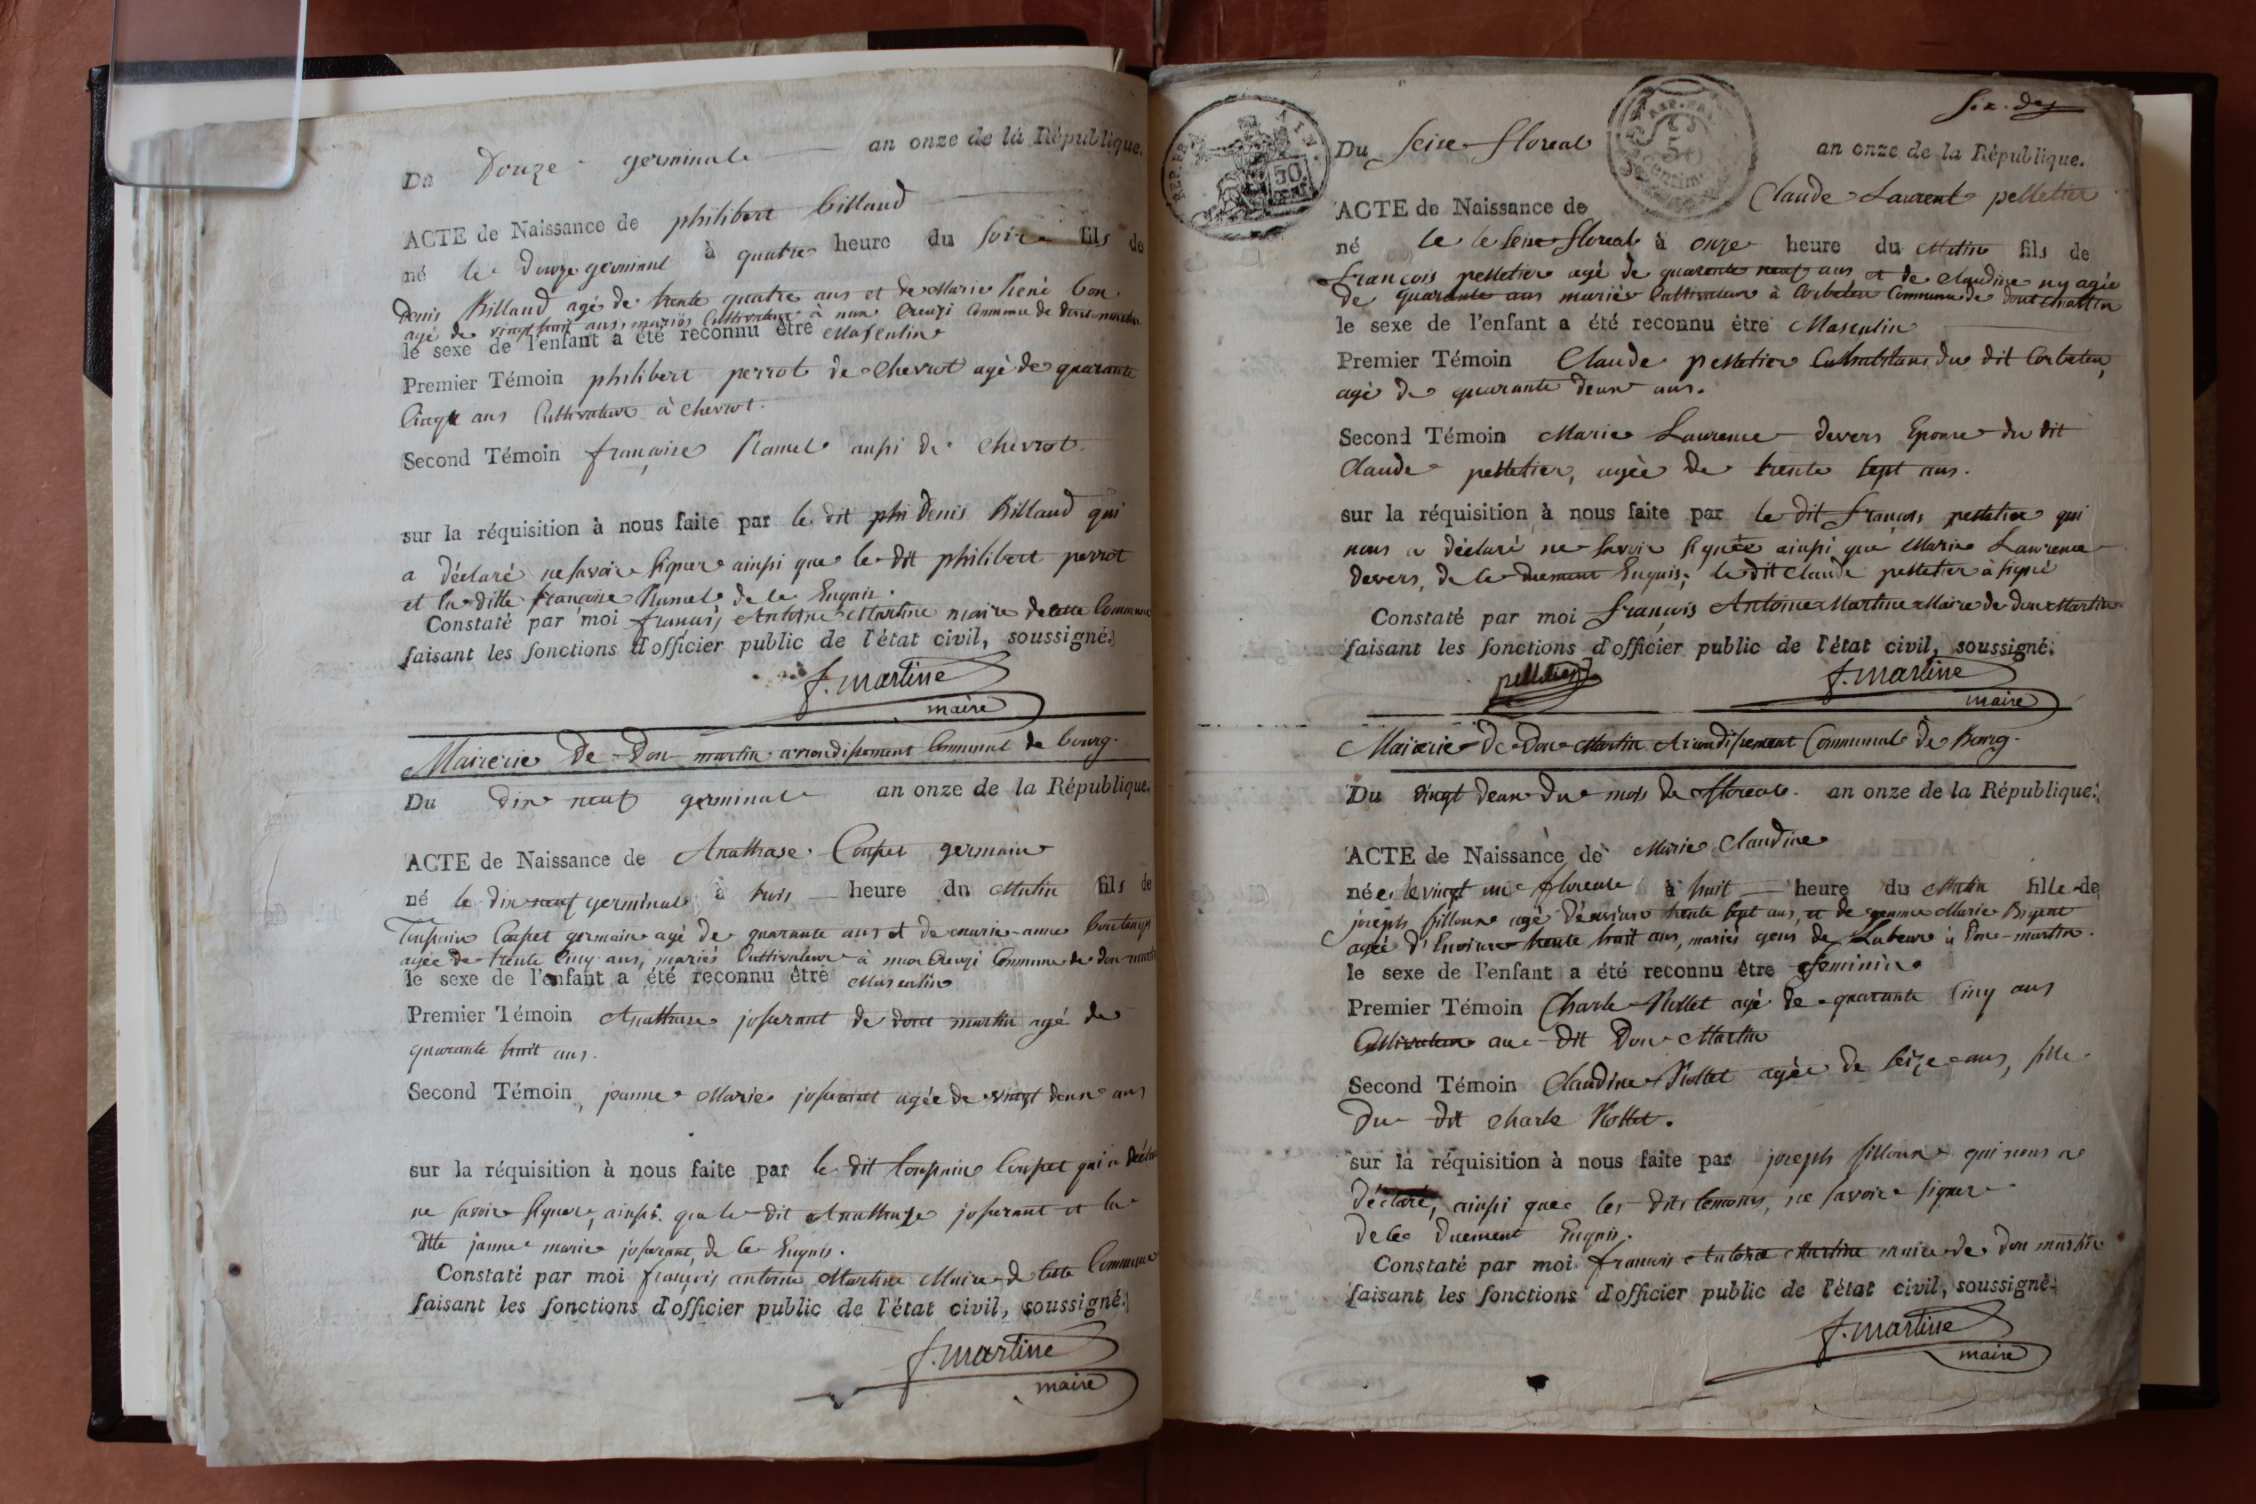 Du Douze germinale an onze de la République.
ACTE de Naissance de philibert billaud
né le douze germinal à quatre heure du soir fils de
Denis Billaud agé de trente quatre ans et de Marie René bon
agé de vingt huit ans, mariés Cultivateur à Commune de
le sexe de l'enfant a été reconnu être Masculin
Premier Témoin philibert perrot de Chevrot agé de quarante
Cinq ans Cultivateur à chevrot.
Second Témoin françoise Ramel aussi de chevrot.
sur la réquisition à nous faite par le dit phi Denis Billaud qui
a déclaré ne savoir signer ainsi que le dit philibert perrot
et la ditte françoise Ramel de ce Enquis.
Constaté par moi françois Antoine Martine maire de cette Commune
faisant les fonctions d'officier public de l'état civil, soussigné.
f. martine
maire
Mairerie De Don martin arrondissement Communal de bourg.
Du dix neuf germinale an onze de la République.
ACTE de Naissance de Anathase Coupet germain
né le dix neuf germinale à trois heure du Matin fils de
Coupet germain agé de quarante ans et de marie-anne
agée de trente cinq ans, mariés Cultivateur à Commune de don martin
le sexe de l'enfant a été reconnu être Masculin
Premier Témoin Anathase josserant de dont martin agé de
quarante huit ans.
Second Témoin, janne Marie josserant agée de vingt deux ans
sur la réquisition à nous faite par le dit Coupet qui a
ne savoir signer, ainsi que le dit Anathase josserant et la
ditte janne marie josserant, de ce Enquis.
Constaté par moi françois antoine Martine Maire de cette Commune
faisant les fonctions d'officier public de l'état civil, soussigné.
f. martine
maire
REP. FRA.
50
5
Du seize floreal an onze de la République.
ACTE de Naissance de Claude Laurent pelletier
né le le seize floreal à onze heure du Matin fils de
François pelletier agé de quarante neuf ans et de Claudine ny agée
de quarante ans mariés Cultivateur à Corbatan Commune de dont Martin
le sexe de l'enfant a été reconnu être Masculin
Premier Témoin Claude pelletier du dit Corbatan,
agé de quarante deux ans.
Second Témoin Marie Laurence devers Epouse du dit
Claude pelletier, agée de trente sept ans.
sur la réquisition à nous faite par le dit françois pelletier qui
nous a déclaré ne savoir signée ainsi que Marie Laurence
devers, de ce duement Enquis; le dit Claude pelletier à signé
Constaté par moi françois Antoine Martine Maire de don Martin
faisant les fonctions d'officier public de l'état civil, soussigné.
pelletier
f. martine
maire
Mairerie De Don Martin Arondissement Communal de Bourg.
Du vingt deux du mois de floreale. an onze de la République.
ACTE de Naissance de Marie Claudine
née, le vingt un floreale à huit heure du Matin fille de
joseph filloux agé d'environ trente sept ans, et de jeanne Marie
agée d'Environ trente huit ans, mariés gens de Labeur à Don-martin.
le sexe de l'enfant a été reconnu être feminin
Premier Témoin Charle Rollet agé de quarante Cinq ans
Cultivateur au dit Don Martin
Second Témoin Claudine Rollet agée de seize ans, fille
Du dit charle Rollet.
sur la réquisition à nous faite par joseph filloux qui nous a
déclaré, ainsi que les dits temoins, ne savoir signer
de ce duement Enquis.
Constaté par moi françois Antoine Martine maire de don martin
faisant les fonctions d'officier public de l'état civil, soussigné.
f. martine
maire